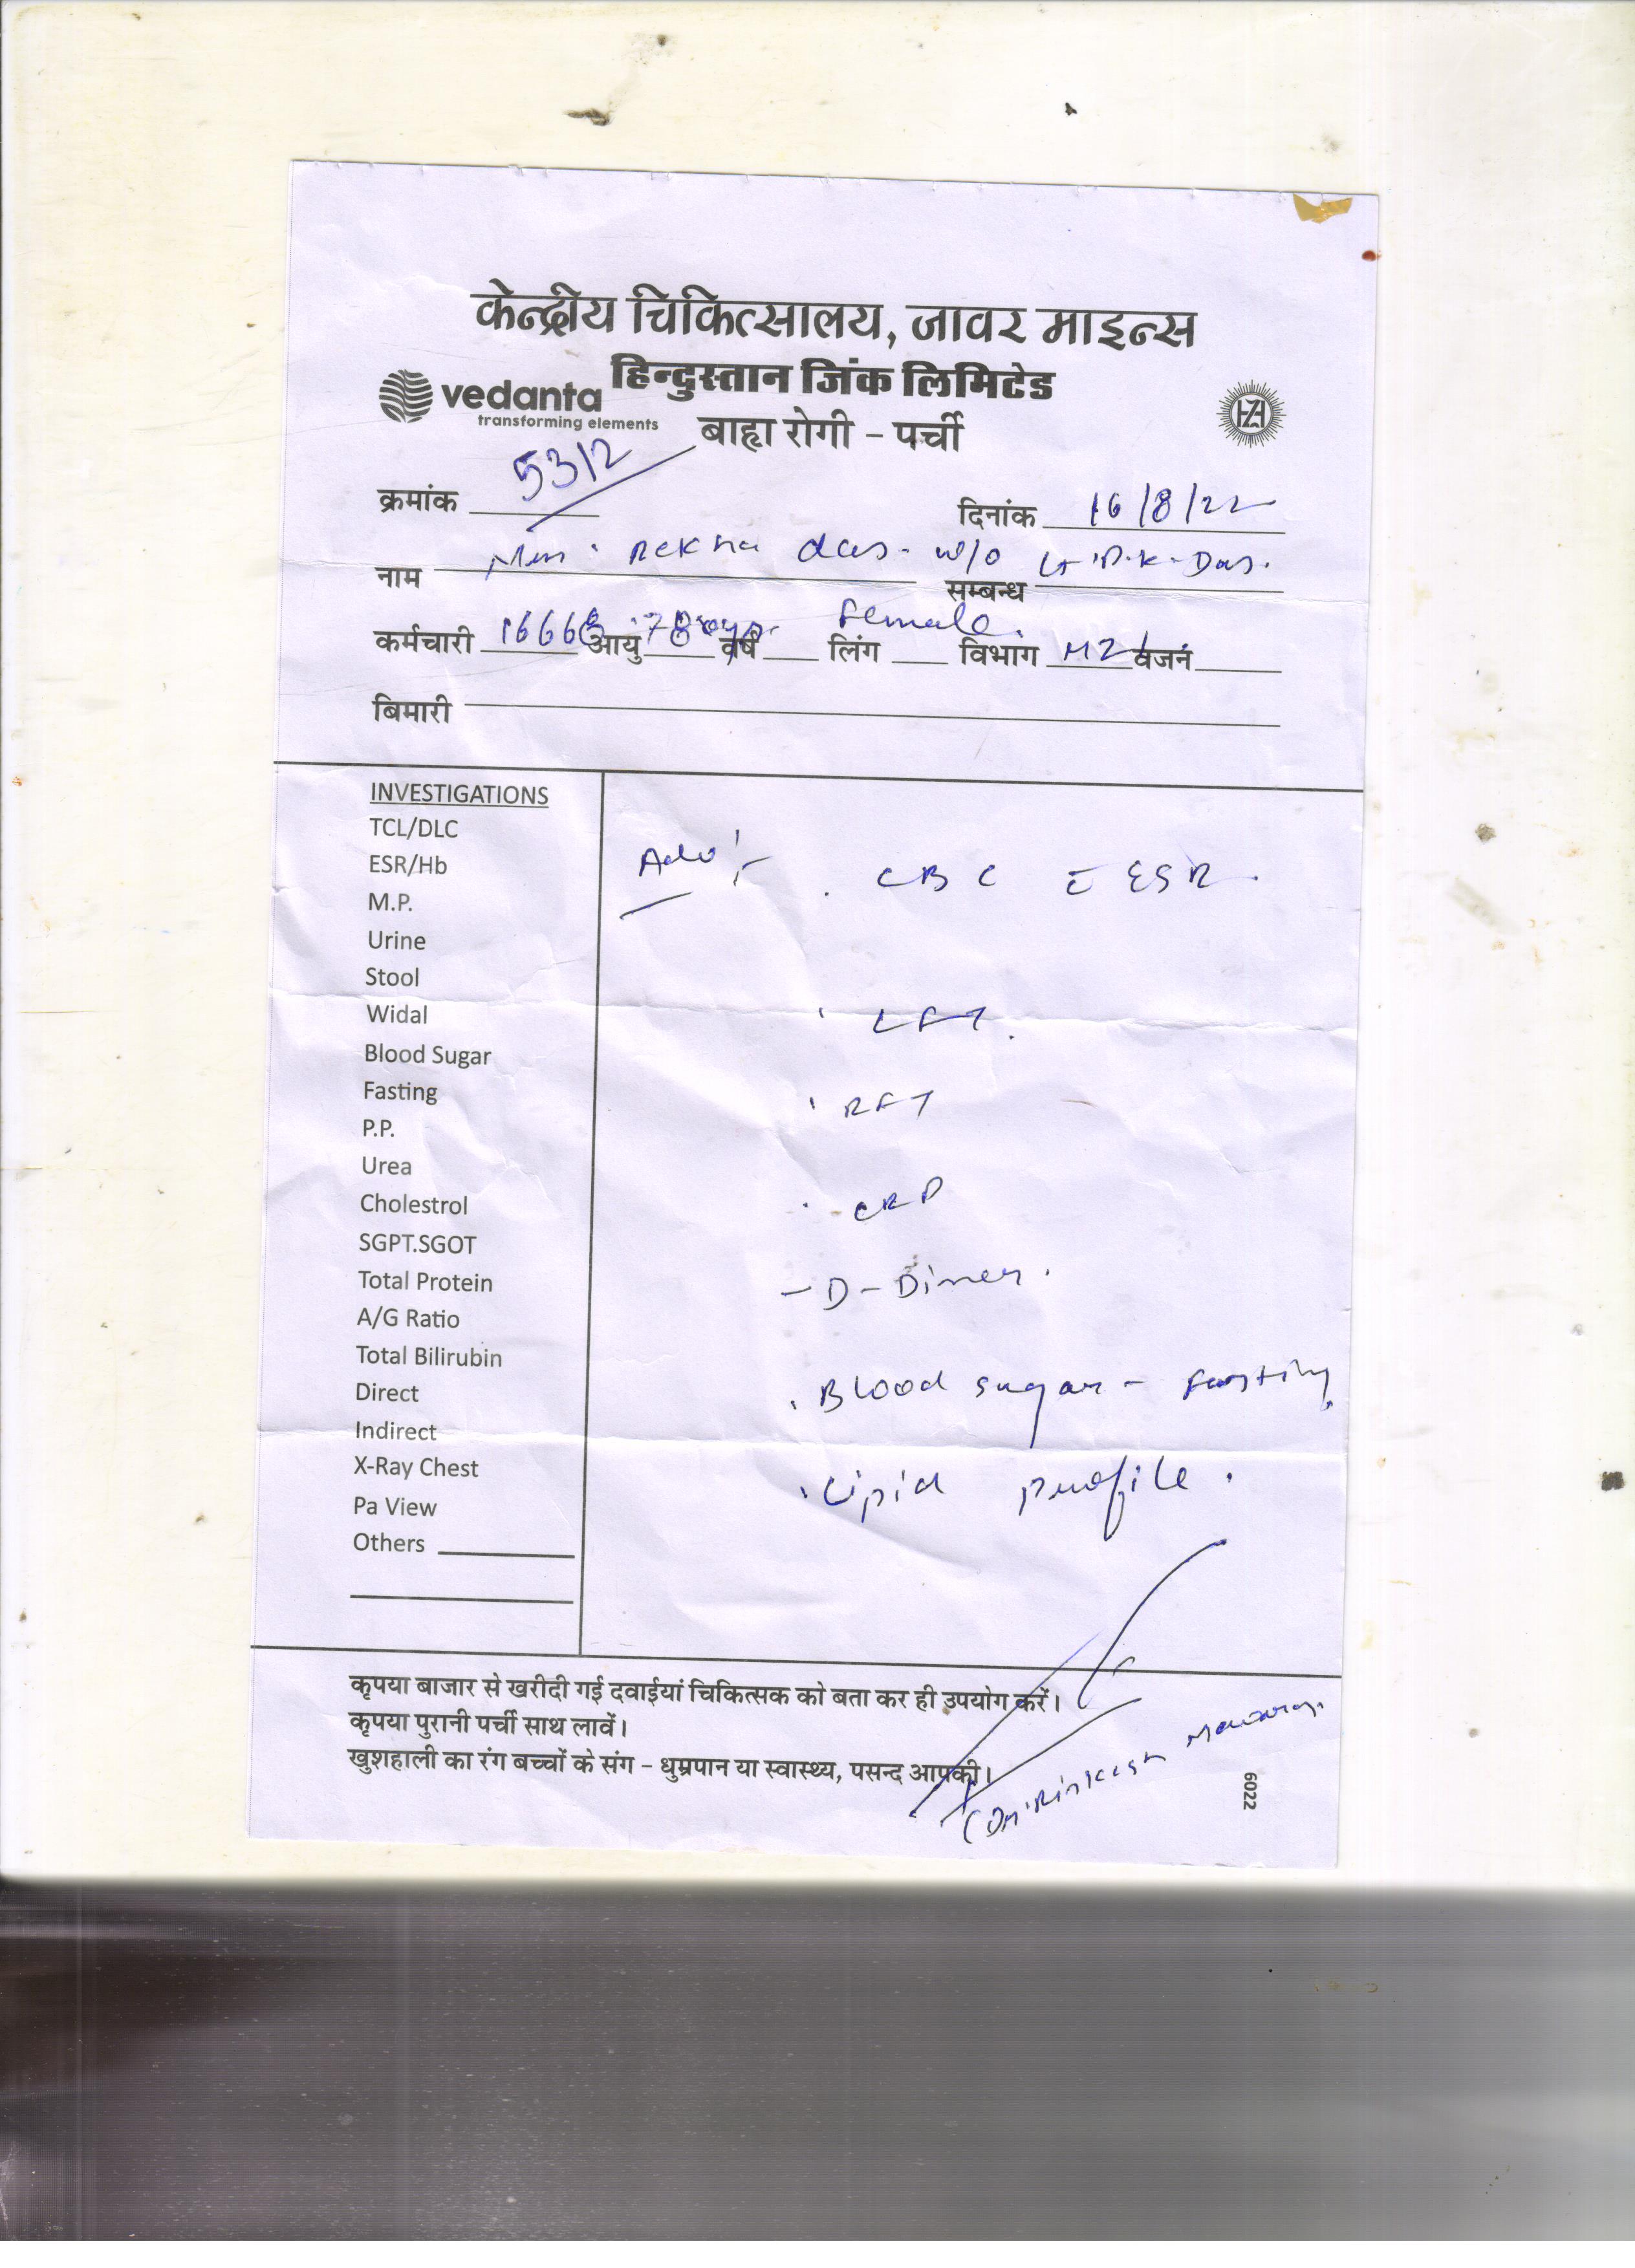 केन्द्रीय चिकित्सालय, जावर माइन्स
हिन्दुस्तान जिंक लिमिटेड
vedanta
transforming elements
बाह्य रोगी - पर्ची
क्रमांक 5312 दिनांक 16/8/22
नाम Mrs. Rekha das. w/o सम्बन्ध Lt. P.K. Das.
कर्मचारी आयु 78 yrs वर्ष लिंग Female. विभाग MZ वजन
बिमारी
INVESTIGATIONS
TCL/DLC
ESR/Hb
M.P.
Urine
Stool
Widal
Blood Sugar
Fasting
P.P.
Urea
Cholestrol
SGPT.SGOT
Total Protein
A/G Ratio
Total Bilirubin
Direct
Indirect
X-Ray Chest
Pa View
Others
Adv:-
. CBC c̄ ESR.
. LFT.
. RFT
. CRP
- D-Dimer.
. Blood sugar - fasting.
. Lipid profile.
कृपया बाजार से खरीदी गई दवाईयां चिकित्सक को बता कर ही उपयोग करें।
कृपया पुरानी पर्ची साथ लावें।
खुशहाली का रंग बच्चों के संग - धुम्रपान या स्वास्थ्य, पसन्द आपकी।
(Dr.
6022